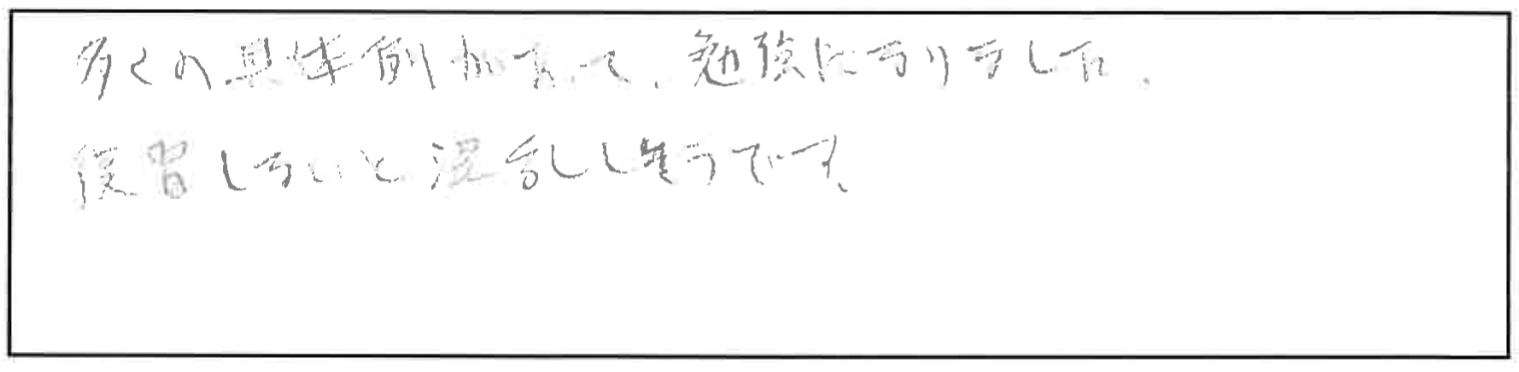 多くの具体例があって、勉強になりました。
復習しないと混乱しそうです。